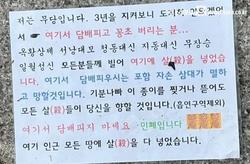 저는 무당입니다. 3년을 지켜보니
여기서 담배피고 꽁초 버리는 분...
옥황상제 서낭대모 청동대신 지동대신 무장승
일월성신 모든분들께 빌어 여기에 살(殺)을
넣었습니다. 여기서 담배피우시는 포함 자손 삼대가 멸하
고 망할것입니다. 기분나빠 이 종이를 찢거나 뜯어도
모든 살(殺)들이 당신을 향할 것입니다. (음연구역제외)
여기서 담배피지 마세요 민폐입니다
여기 인근 모든 땅에 살(殺)을 다 넣었습니다.